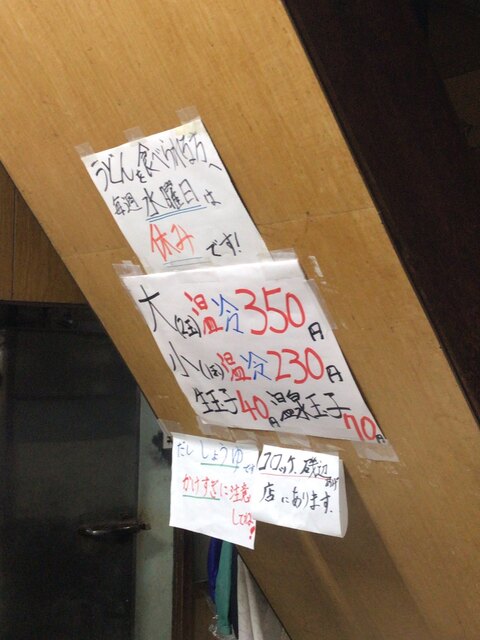 うどんを食べられる方へ
毎週水曜日は
休みです!
大(2玉)温冷350円
小(1玉)温冷230円
生玉子40円温泉玉子70円
だししょうゆです
かけすぎに注意
してね!
コロッケ、磯辺あげ
店にあります.